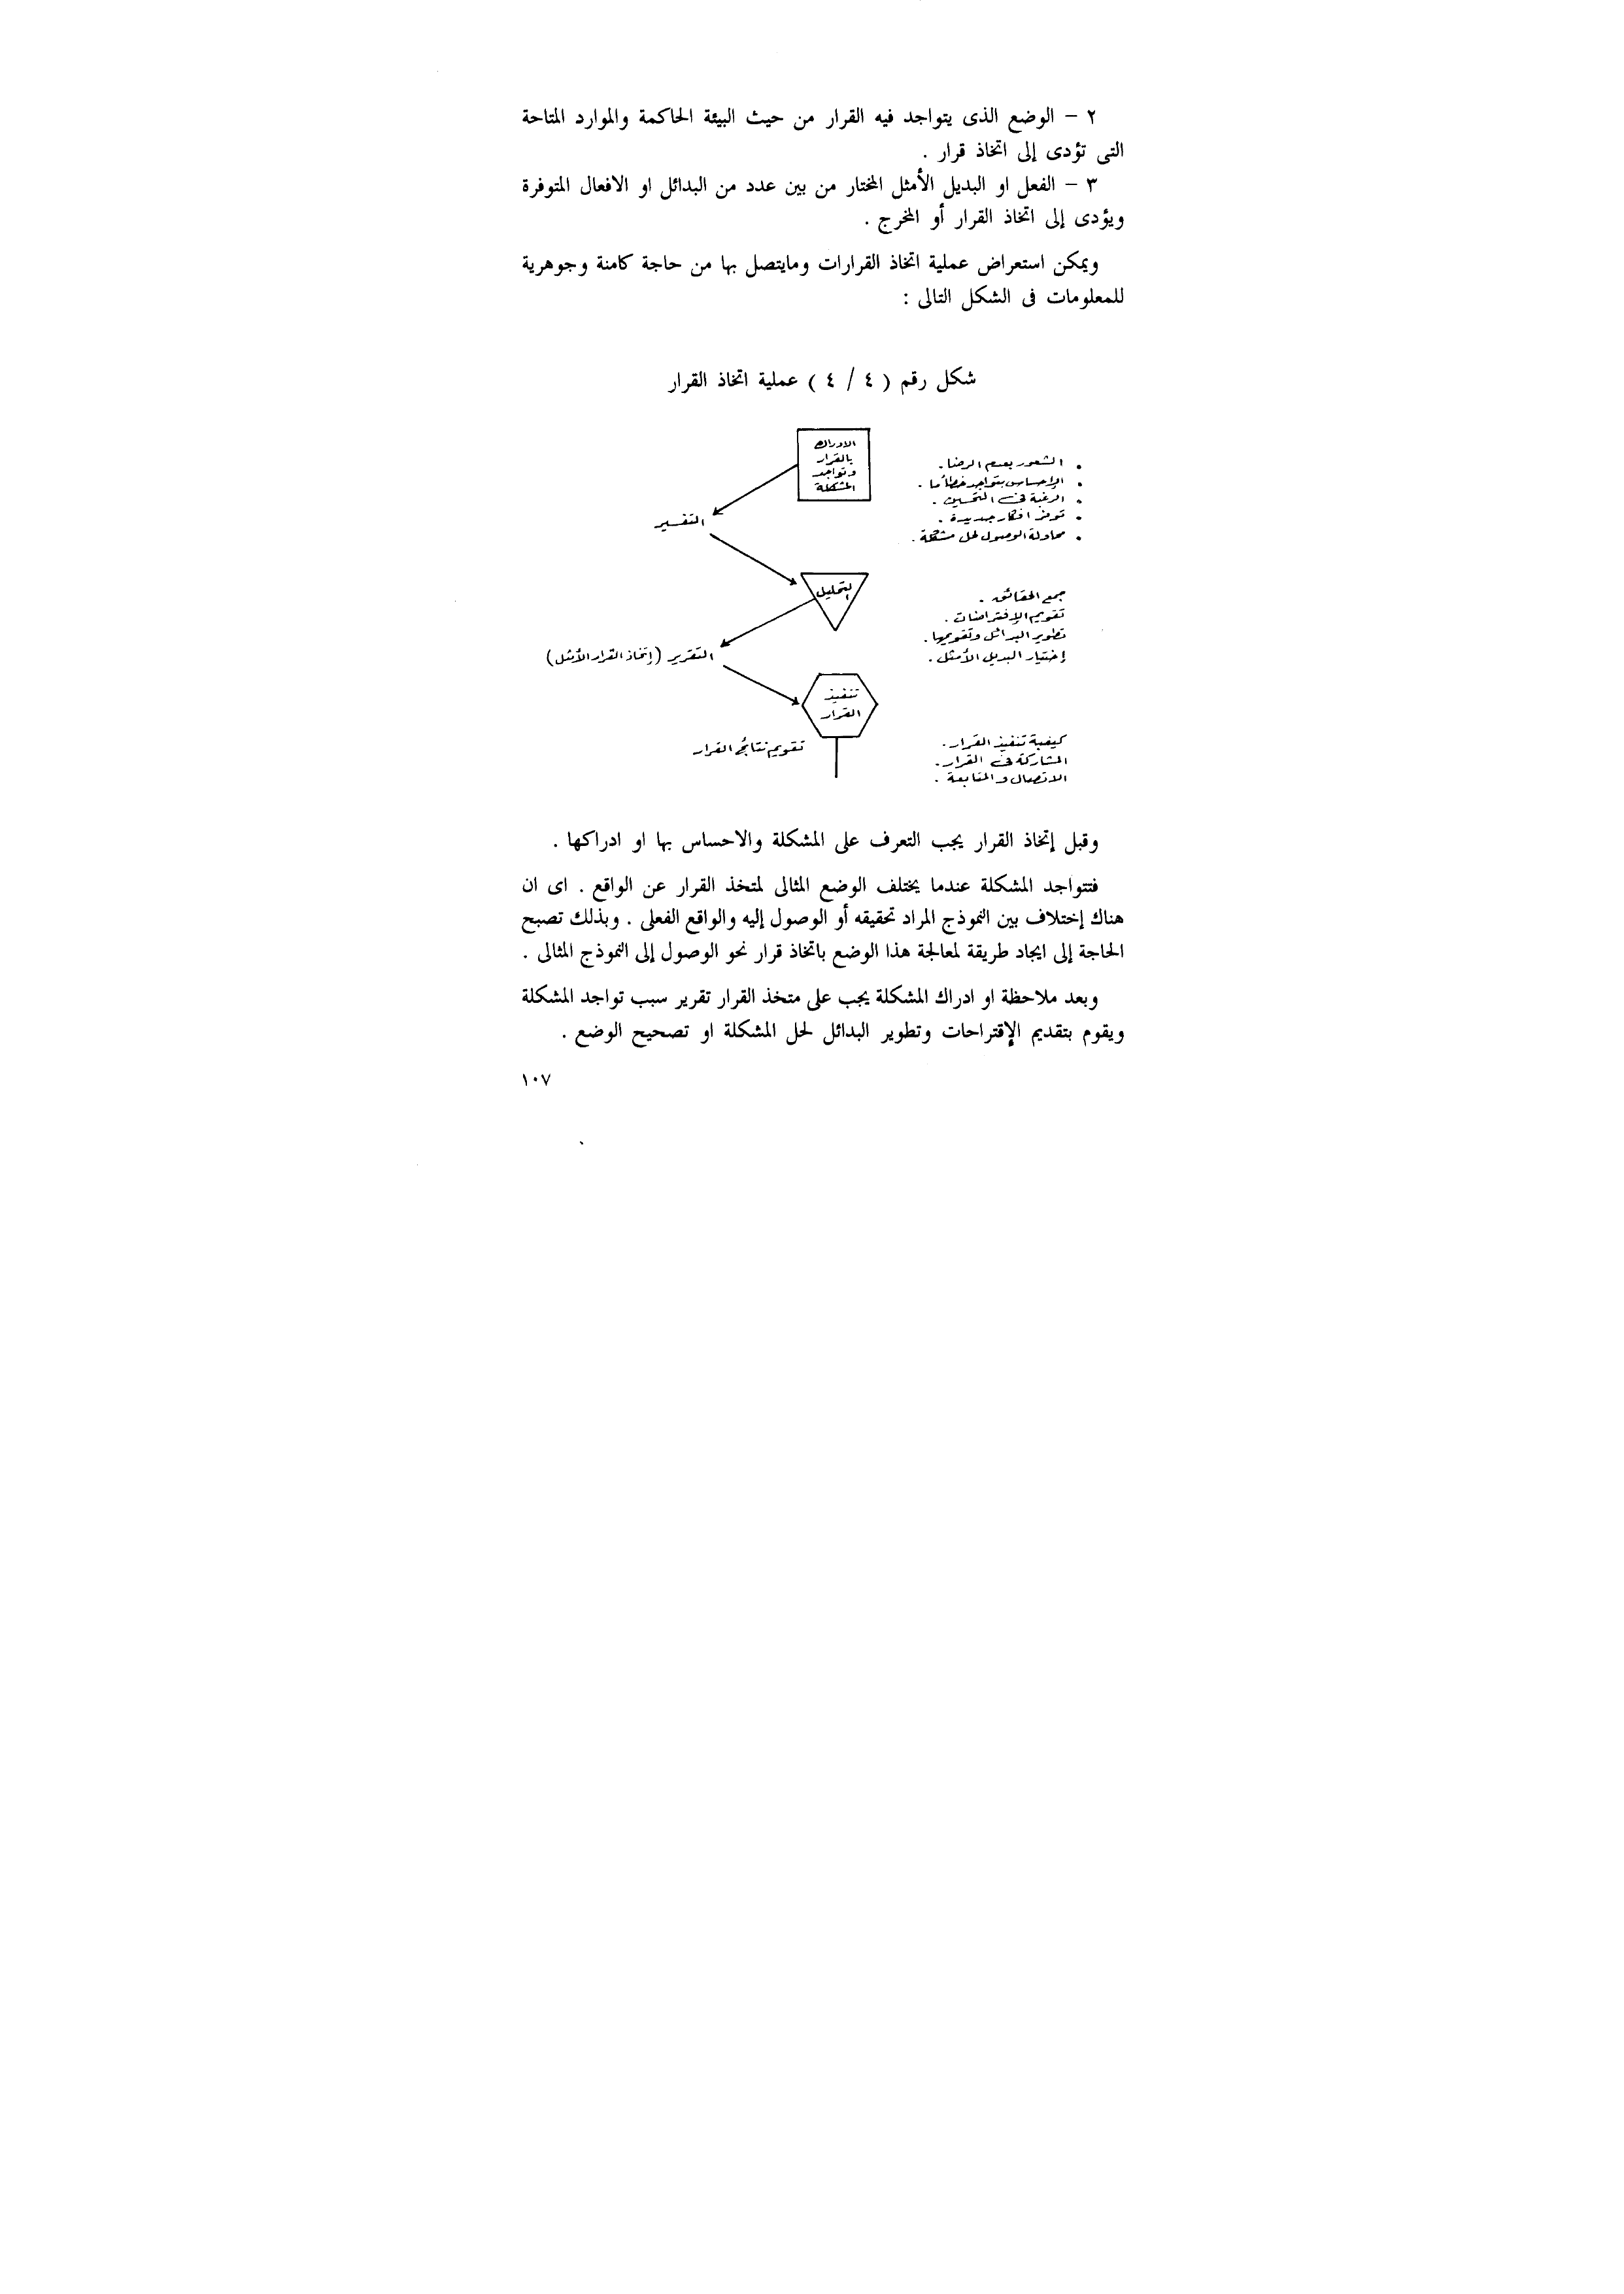 ٢ – الوضع الذى يتواجد فيه القرار من حيث البيئة الحاكمة والموارد المتاحة
التى تؤدى إلى اتخاذ قرار .
٣ – الفعل او البديل الأمثل المختار من بين عدد من البدائل او الافعال المتوفرة
ويؤدى إلى اتخاذ القرار أو المخرج .
ويمكن استعراض عملية اتخاذ القرارات ومايتصل بها من حاجة كامنة وجوهرية
للمعلومات فى الشكل التالى :
شكل رقم ( ٤ / ٤ ) عملية اتخاذ القرار
الادراك
بالقرار
وتواجد
المشكلة
• الشعور بعدم الرضا .
• الإحساس بتواجد خطأ ما .
• الرغبة فى التحسين .
• توفر افكار جديدة .
• محاولة الوصول لحل مشكلة .
التفسير
التحليل
جمع الحقائق .
تقويم الإفتراضات .
تطوير البدائل وتقويمها .
إختيار البديل الأمثل .
التقرير (إتخاذ القرار الأمثل)
تنفيذ
القرار
كيفية تنفيذ القرار .
المشاركة فى القرار .
الاتصال والمتابعة .
تقويم نتائج القرار
وقبل إتخاذ القرار يجب التعرف على المشكلة والاحساس بها او ادراكها .
فتتواجد المشكلة عندما يختلف الوضع المثالى لمتخذ القرار عن الواقع . اى ان
هناك إختلاف بين النموذج المراد تحقيقه أو الوصول إليه والواقع الفعلى . وبذلك تصبح
الحاجة إلى ايجاد طريقة لمعالجة هذا الوضع باتخاذ قرار نحو الوصول إلى النموذج المثالى .
وبعد ملاحظة او ادراك المشكلة يجب على متخذ القرار تقرير سبب تواجد المشكلة
ويقوم بتقديم الإقتراحات وتطوير البدائل لحل المشكلة او تصحيح الوضع .
١٠٧